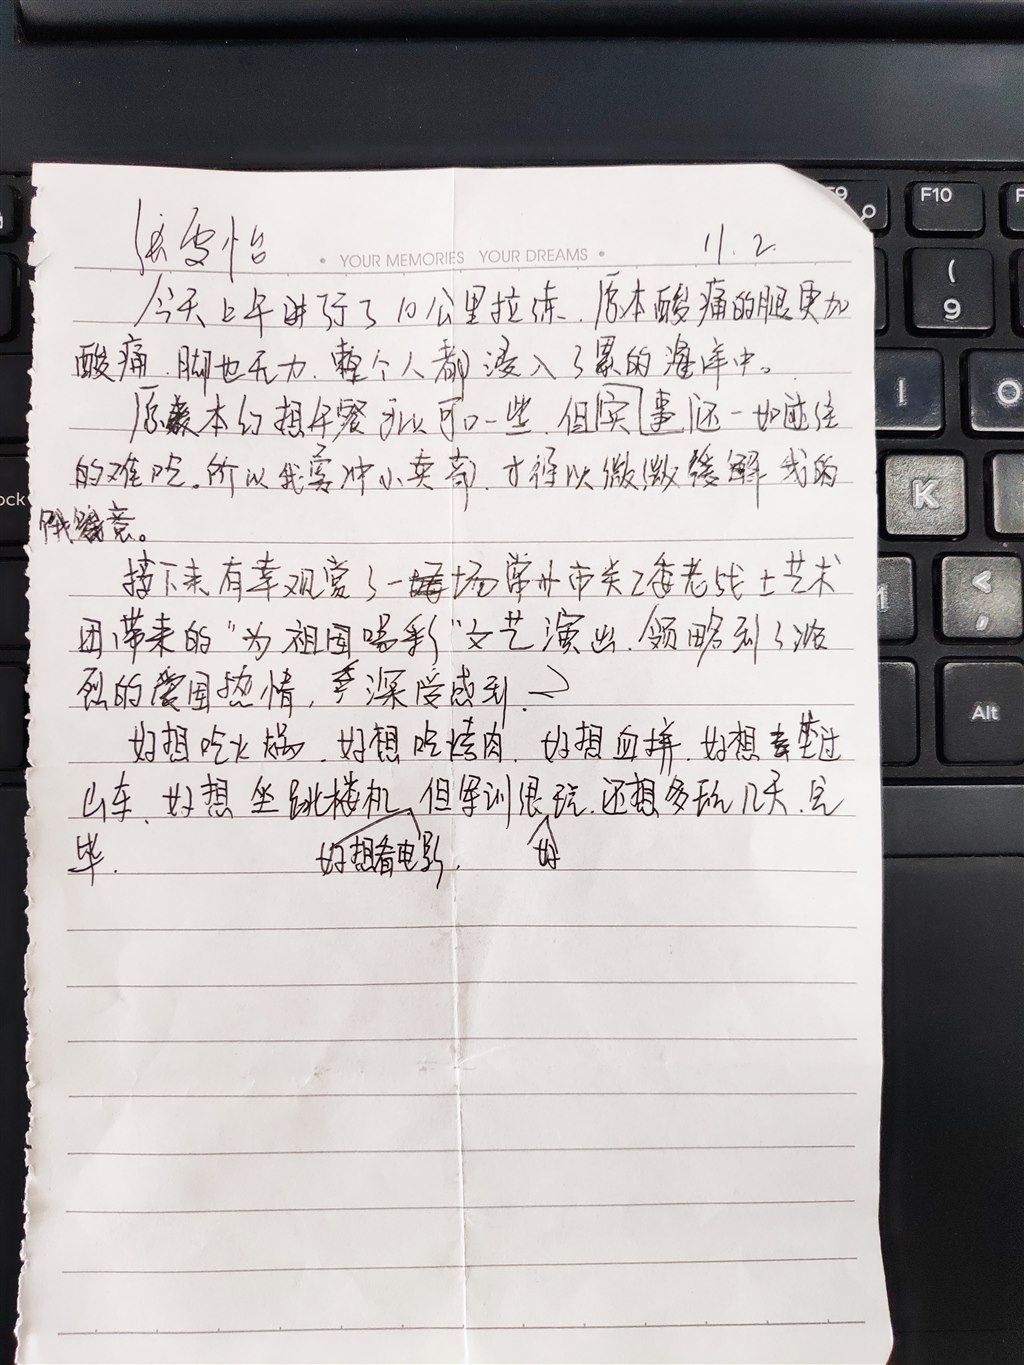 张雯怡 • YOUR MEMORIES YOUR DREAMS • 11.2.
今天上午进行了10公里拉练、原本酸痛的腿更加
酸痛、脚也无力、整个人都浸入了累的海洋中。
原本幻想午餐可以可口一些、但实事还一如既往
的难吃。所以我要冲小卖部、才得以微微缓解我的
饿意。
接下来有幸观赏了一场常州市关工委老战士艺术
团带来的“为祖国喝彩”文艺演出、领略到了浓
烈的爱国热情，深受感到、
好想吃火锅、好想吃烤肉、好想血拼、好想坐过
山车、好想坐跳楼机、但军训很玩、还想多玩几天、完
毕.
好想看电影、 好
F9
F10
(
9
I
O
K
M
<
,
Alt
ock